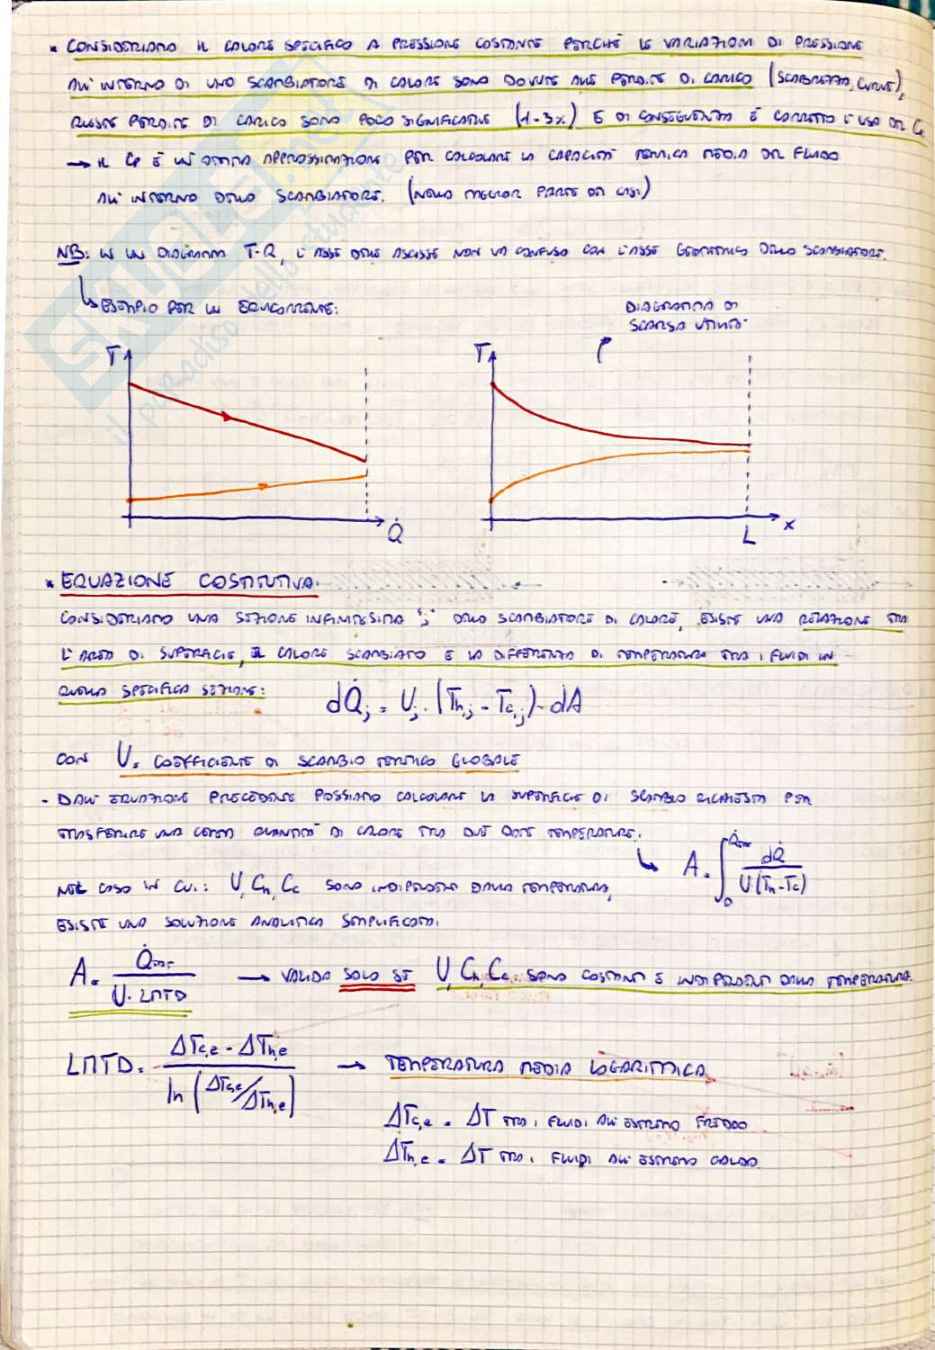 * CONSIDERIAMO IL CALORE SPECIFICO A PRESSIONE COSTANTE PERCHÉ LE VARIAZIONI DI PRESSIONE
ALL'INTERNO DI UNO SCAMBIATORE DI CALORE SONO DOVUTE ALLE PERDITE DI CARICO (SCABREZZA, CURVE),
QUESTE PERDITE DI CARICO SONO POCO SIGNIFICATIVE (1-3%) E DI CONSEGUENZA È CORRETTO L'USO DEL Cp
→ IL Cp È UN'OTTIMA APPROSSIMAZIONE PER CALCOLARE LA CAPACITÀ TERMICA MEDIA DEL FLUIDO
ALL'INTERNO DELLO SCAMBIATORE. (NELLA MAGGIOR PARTE DEI CASI)
NB: IN UN DIAGRAMMA T-Q, L'ASSE DELLE ASCISSE NON VA CONFUSO CON L'ASSE GEOMETRICO DELLO SCAMBIATORE.
↳ ESEMPIO PER UN EQUICORRENTE:
DIAGRAMMA DI
SCARSA UTILITÀ
T
Q̇
T
L
x
* EQUAZIONE COSTITUTIVA.
CONSIDERIAMO UNA SEZIONE INFINITESIMA "j" DELLO SCAMBIATORE DI CALORE, ESISTE UNA RELAZIONE TRA
L'AREA DI SUPERFICIE, IL CALORE SCAMBIATO E LA DIFFERENZA DI TEMPERATURA TRA I FLUIDI IN
QUELLA SPECIFICA SEZIONE: dQ̇j = Uj · (Th,j - Tc,j) · dA
CON U = COEFFICIENTE DI SCAMBIO TERMICO GLOBALE
- DALL'EQUAZIONE PRECEDENTE POSSIAMO CALCOLARE LA SUPERFICIE DI SCAMBIO RICHIESTA PER
TRASFERIRE UNA CERTA QUANTITÀ DI CALORE TRA DUE DATE TEMPERATURE.
↳ A = ∫₀^Q̇tot dQ̇ / U(Th-Tc)
NEL CASO IN CUI: U, Ch, Cc SONO INDIPENDENTI DALLA TEMPERATURA,
ESISTE UNA SOLUZIONE ANALITICA SEMPLIFICATA.
A = Q̇tot / U · LMTD → VALIDA SOLO SE U, Ch, Cc SONO COSTANTI E INDIPENDENTI DALLA TEMPERATURA.
LMTD = ΔTc,e - ΔTh,e / ln (ΔTc,e/ΔTh,e) → TEMPERATURA MEDIA LOGARITMICA
ΔTc,e = ΔT TRA I FLUIDI ALL'ESTREMO FREDDO
ΔTh,e = ΔT TRA I FLUIDI ALL'ESTREMO CALDO